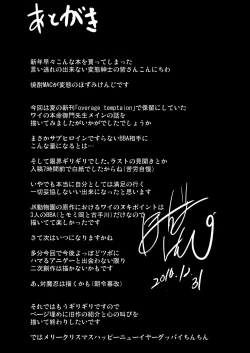 あとがき
新年早々こんな本を買ってしまった
言い逃れの出来ない変態紳士の皆さんこんにちわ
焼酎MACが変態のほずみけんじです
今回は夏の新刊「overage temptaion」で保留にしていた
ワイの本命御門先生メインの話を
描いてみましたがいかがでしたでしょうか
まさかサブヒロインですらないBBA相手に
こんな量になるとは…
そして限界ギリギリでした。ラストの見開きとか
入稿7時間前で白紙でしたからね(自慢する)
いやでも本当に自分としては満足の行く
一切妥協しない出来になったと思います
JK動物園の原作におけるワイのヌキポイントは
3人のBBA(とモミ岡と古手川)だけなので
描いてて楽しかったです
さて次はいつになりますかね
多分今回で今後よっぽどツボに
ハマるアニゲーと出会わない限り
二次創作は描かないかもです
あ、対魔忍は描くかも(朝令暮改)
それではもうギリギリですので
ページ埋めに旧作の紹介と心の叫びを
描いて終わりたいです
ではメリークリスマスハッピーニューイヤーグッバイちんちん
2016.12.31